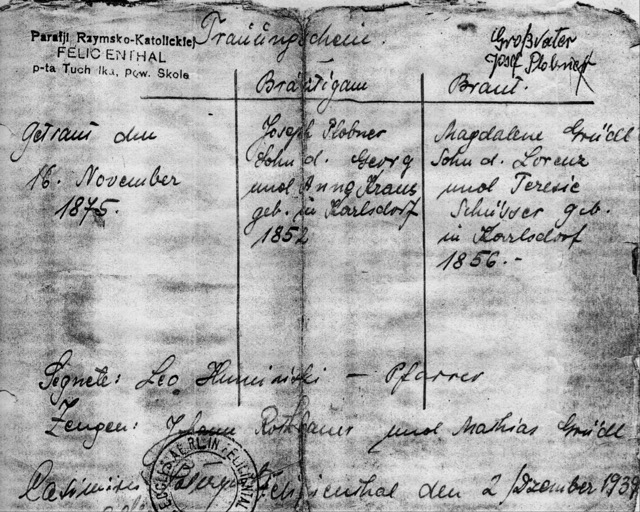 Parafji Rzymsko-Katolickiej
FELICIENTHAL
p-ta Tuchlka, pow. Skole
Trauungschein.
Großvater
Josef Plobner
Bräutigam
Braut.
Getraut den
16. November
1875.
Joseph Plobner
Sohn d. Georg
und Anna Kraus
geb. in Karlsdorf
1852
Magdalene Gründl
Sohn d. Lorenz
und Teresie
geb.
in Karlsdorf
1856.-
Segnete: Leo - Pfarrer
Zeugen: Johann Rothbauer und Mathias Gründl
Felizienthal den 2/Dzember 1939